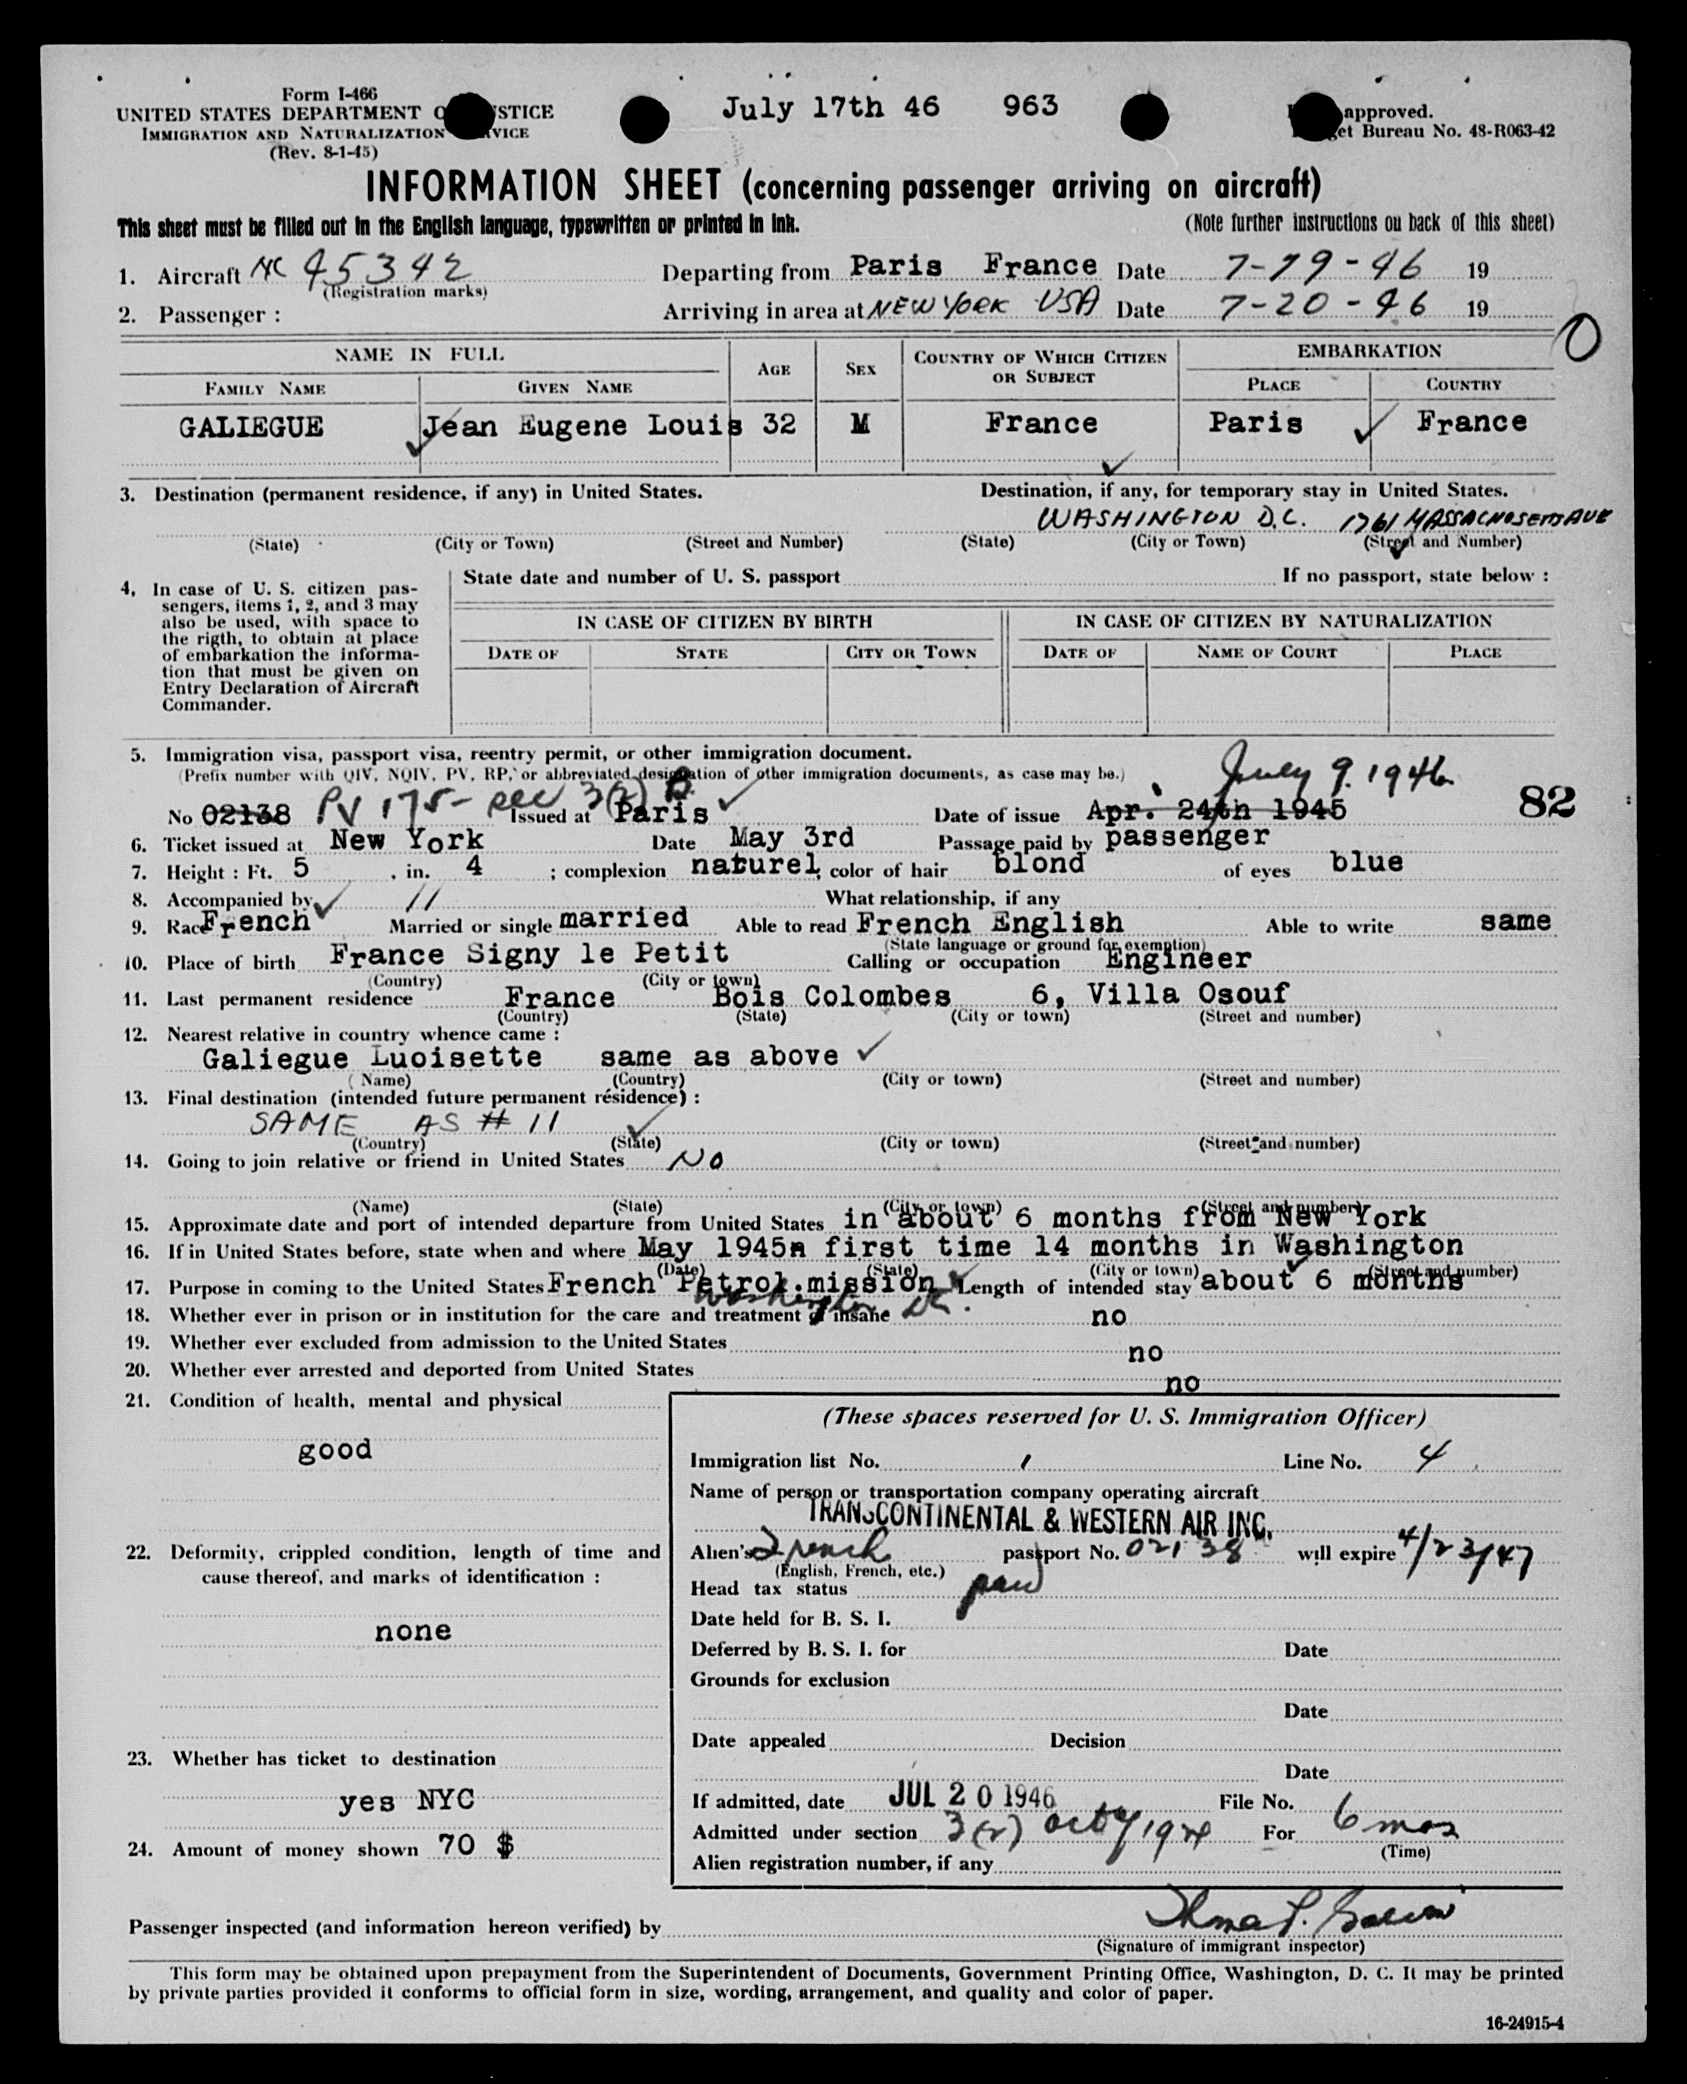 Form I-466
UNITED STATES DEPARTMENT O STICE
IMMIGRATION AND NATURALIZATION VICE
(Rev. 8-1-45)
July 17th 46 963
approved.
et Bureau No. 48-R063-42
INFORMATION SHEET (concerning passenger arriving on aircraft)
This sheet must be filled out in the English language, typewritten or printed in ink.
(Note further instructions on back of this sheet)
1. Aircraft NC 45342 Departing from Paris France Date 7-19-46 19
(Registration marks)
2. Passenger : Arriving in area at NEW YORK USA Date 7-20-46 19
0
NAME IN FULL AGE SEX COUNTRY OF WHICH CITIZEN OR SUBJECT EMBARKATION
FAMILY NAME GIVEN NAME PLACE COUNTRY
GALIEGUE Jean Eugene Louis 32 M France Paris France
3. Destination (permanent residence, if any) in United States. Destination, if any, for temporary stay in United States.
WASHINGTON D.C. 1761 MASSACHOSETTS AVE
(State) (City or Town) (Street and Number) (State) (City or Town) (Street and Number)
4, In case of U. S. citizen pas-
sengers, items 1, 2, and 3 may
also be used, with space to
the rigth, to obtain at place
of embarkation the informa-
tion that must be given on
Entry Declaration of Aircraft
Commander.
State date and number of U. S. passport If no passport, state below :
IN CASE OF CITIZEN BY BIRTH IN CASE OF CITIZEN BY NATURALIZATION
DATE OF STATE CITY OR TOWN DATE OF NAME OF COURT PLACE
5. Immigration visa, passport visa, reentry permit, or other immigration document.
(Prefix number with QIV, NQIV, PV, RP, or abbreviated designation of other immigration documents, as case may be.)
July 9. 1946
No 02138 PV 175- sec 3(2) Issued at Paris Date of issue Apr. 24th 1945 82
6. Ticket issued at New York Date May 3rd Passage paid by passenger
7. Height : Ft. 5 , in. 4 ; complexion naturel, color of hair blond of eyes blue
8. Accompanied by // What relationship, if any
9. Race French Married or single married Able to read French English Able to write same
(State language or ground for exemption)
10. Place of birth France Signy le Petit Calling or occupation Engineer
(Country) (City or town)
11. Last permanent residence France Bois Colombes 6, Villa Osouf
(Country) (State) (City or town) (Street and number)
12. Nearest relative in country whence came :
Galiegue Luoisette same as above
(Name) (Country) (City or town) (Street and number)
13. Final destination (intended future permanent résidence) :
SAME AS # 11
(Country) (State) (City or town) (Street and number)
14. Going to join relative or friend in United States NO
(Name) (State) (City or town) (Street and number)
15. Approximate date and port of intended departure from United States in about 6 months from New York
16. If in United States before, state when and where May 1945n first time 14 months in Washington
(Date) (State) (City or town) (Street and number)
17. Purpose in coming to the United States French Petrol.mission Length of intended stay about 6 months
Washington DC.
18. Whether ever in prison or in institution for the care and treatment of insane no
19. Whether ever excluded from admission to the United States no
20. Whether ever arrested and deported from United States no
21. Condition of health, mental and physical
good
22. Deformity, crippled condition, length of time and
cause thereof, and marks of identification :
none
23. Whether has ticket to destination
yes NYC
24. Amount of money shown 70 $
(These spaces reserved for U. S. Immigration Officer)
Immigration list No. 1 Line No. 4
Name of person or transportation company operating aircraft
TRANSCONTINENTAL & WESTERN AIR INC.
Alien's French passport No. 02138 will expire 4/23/47
(English, French, etc.)
Head tax status paid
Date held for B. S. I.
Deferred by B. S. I. for Date
Grounds for exclusion
Date
Date appealed Decision
Date
If admitted, date JUL 20 1946 File No.
Admitted under section 3(2) act of 1924 For 6 mos
(Time)
Alien registration number, if any
Passenger inspected (and information hereon verified) by
(Signature of immigrant inspector)
This form may be obtained upon prepayment from the Superintendent of Documents, Government Printing Office, Washington, D. C. It may be printed
by private parties provided it conforms to official form in size, wording, arrangement, and quality and color of paper.
16-24915-4